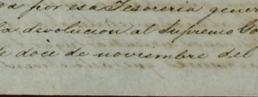 a por esa Tesoreria gener
la devolucion al Supremo Go
de doce de noviembre del